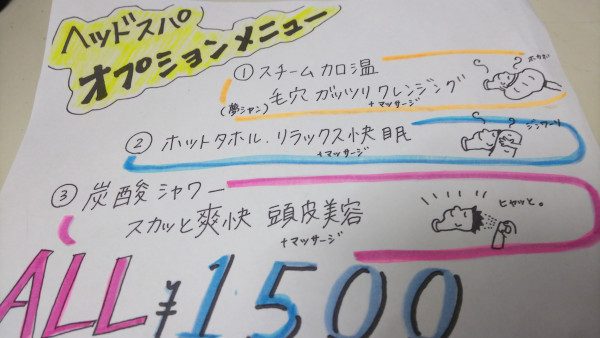 ヘッドスパ
オプションメニュー
① スチーム加温
ポカポカ
毛穴 ガッツリ クレンジング
(夢シャン) +マッサージ
② ホットタホル.リラックス快眠
ジンワ〜リ
+マッサージ
③ 炭酸シャワー
スカッと爽快 頭皮美容
ヒヤッと。
+マッサージ
ALL ¥1500